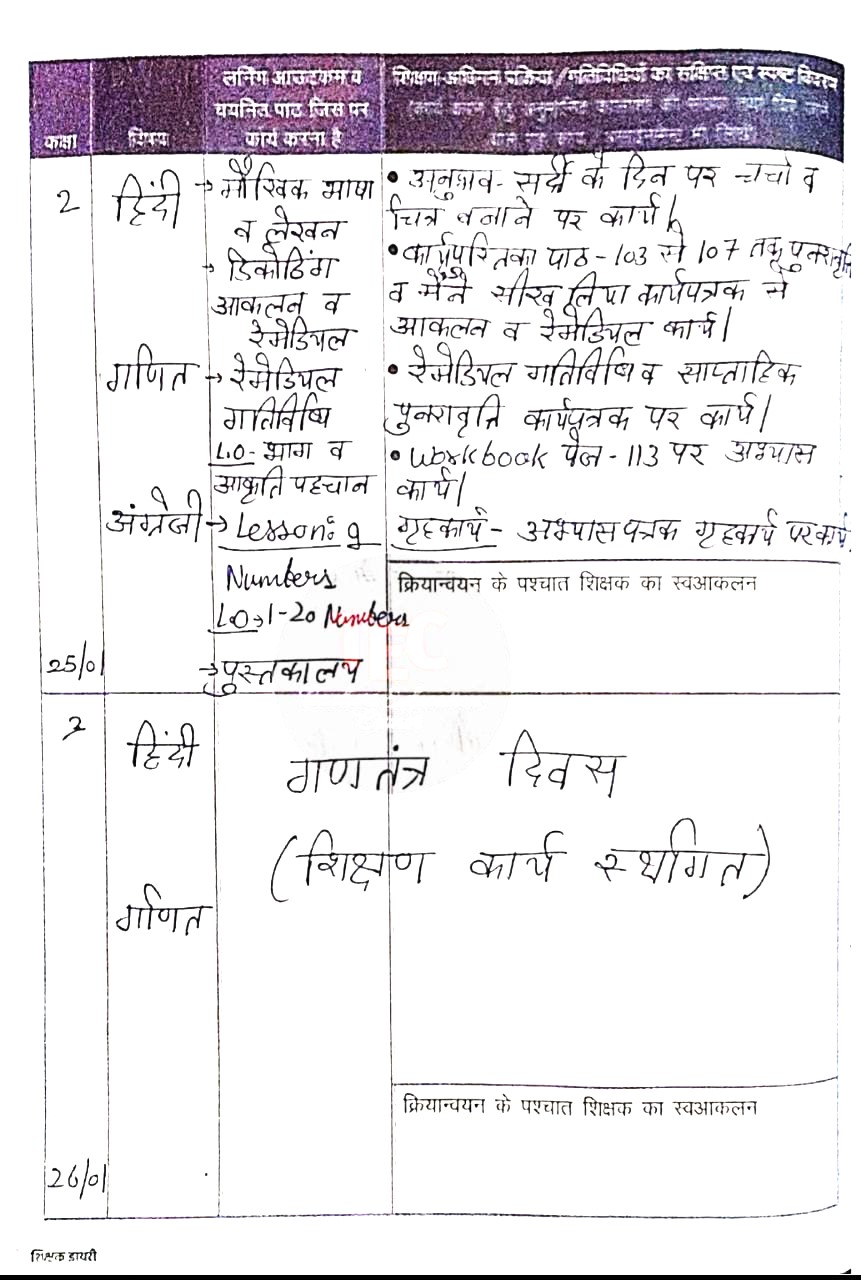 कक्षा
विषय
लर्निंग आउटकम व
चयनित पाठ जिस पर
कार्य करना है
शिक्षण अधिगम प्रक्रिया / गतिविधियों का संक्षिप्त एवं स्पष्ट विवरण
2
हिंदी
→ मौखिक भाषा
व लेखन
→ डिकोडिंग
आकलन व
रेमेडियल
• अनुभव - सर्दी के दिन पर चर्चा व
चित्र बनाने पर कार्य।
• कार्यपुस्तिका पाठ - 103 से 107 तक पुनरावृत्ति
व मैंने सीख लिया कार्यपत्रक से
आकलन व रेमेडियल कार्य।
गणित
→ रेमेडियल
गतिविधि
L.O - भाग व
आकृति पहचान
• रेमेडियल गतिविधि व साप्ताहिक
पुनरावृत्ति कार्यपत्रक पर कार्य।
• Workbook पेज - 113 पर अभ्यास
कार्य।
अंग्रेजी
→ Lesson: 9
Numbers
L.O → 1-20 Numbers
→ पुस्तकालय
गृहकार्य - अभ्यास पत्रक गृहकार्य पर कार्य
क्रियान्वयन के पश्चात शिक्षक का स्वआकलन
25/01
2
हिंदी
गणतंत्र दिवस
(शिक्षण कार्य स्थगित)
गणित
क्रियान्वयन के पश्चात शिक्षक का स्वआकलन
26/01
शिक्षक डायरी